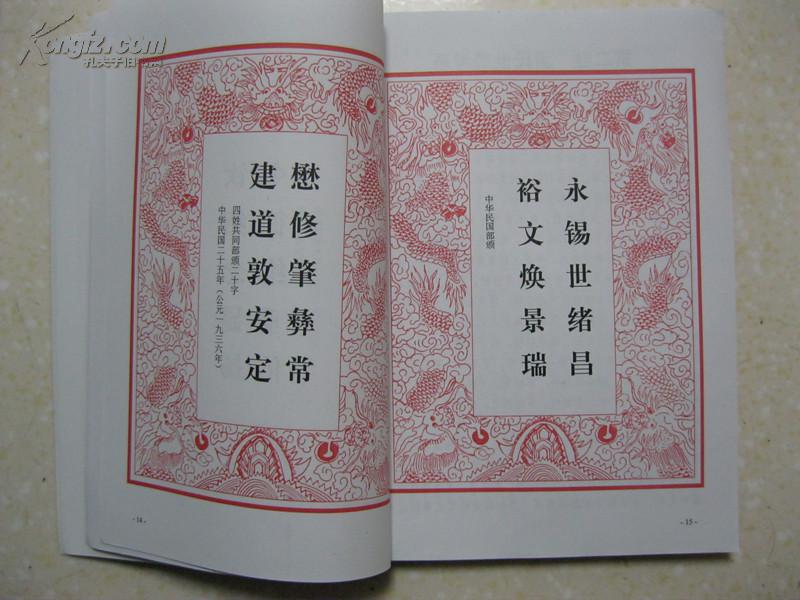 Kongfz.com
孔夫子旧书网
中华民国二十五年(公元一九三六年)
四姓共同部颁二十字
建道敦安定
懋修肇彝常
- 14 -
中华民国部颁
裕文焕景瑞
永锡世绪昌
- 15 -